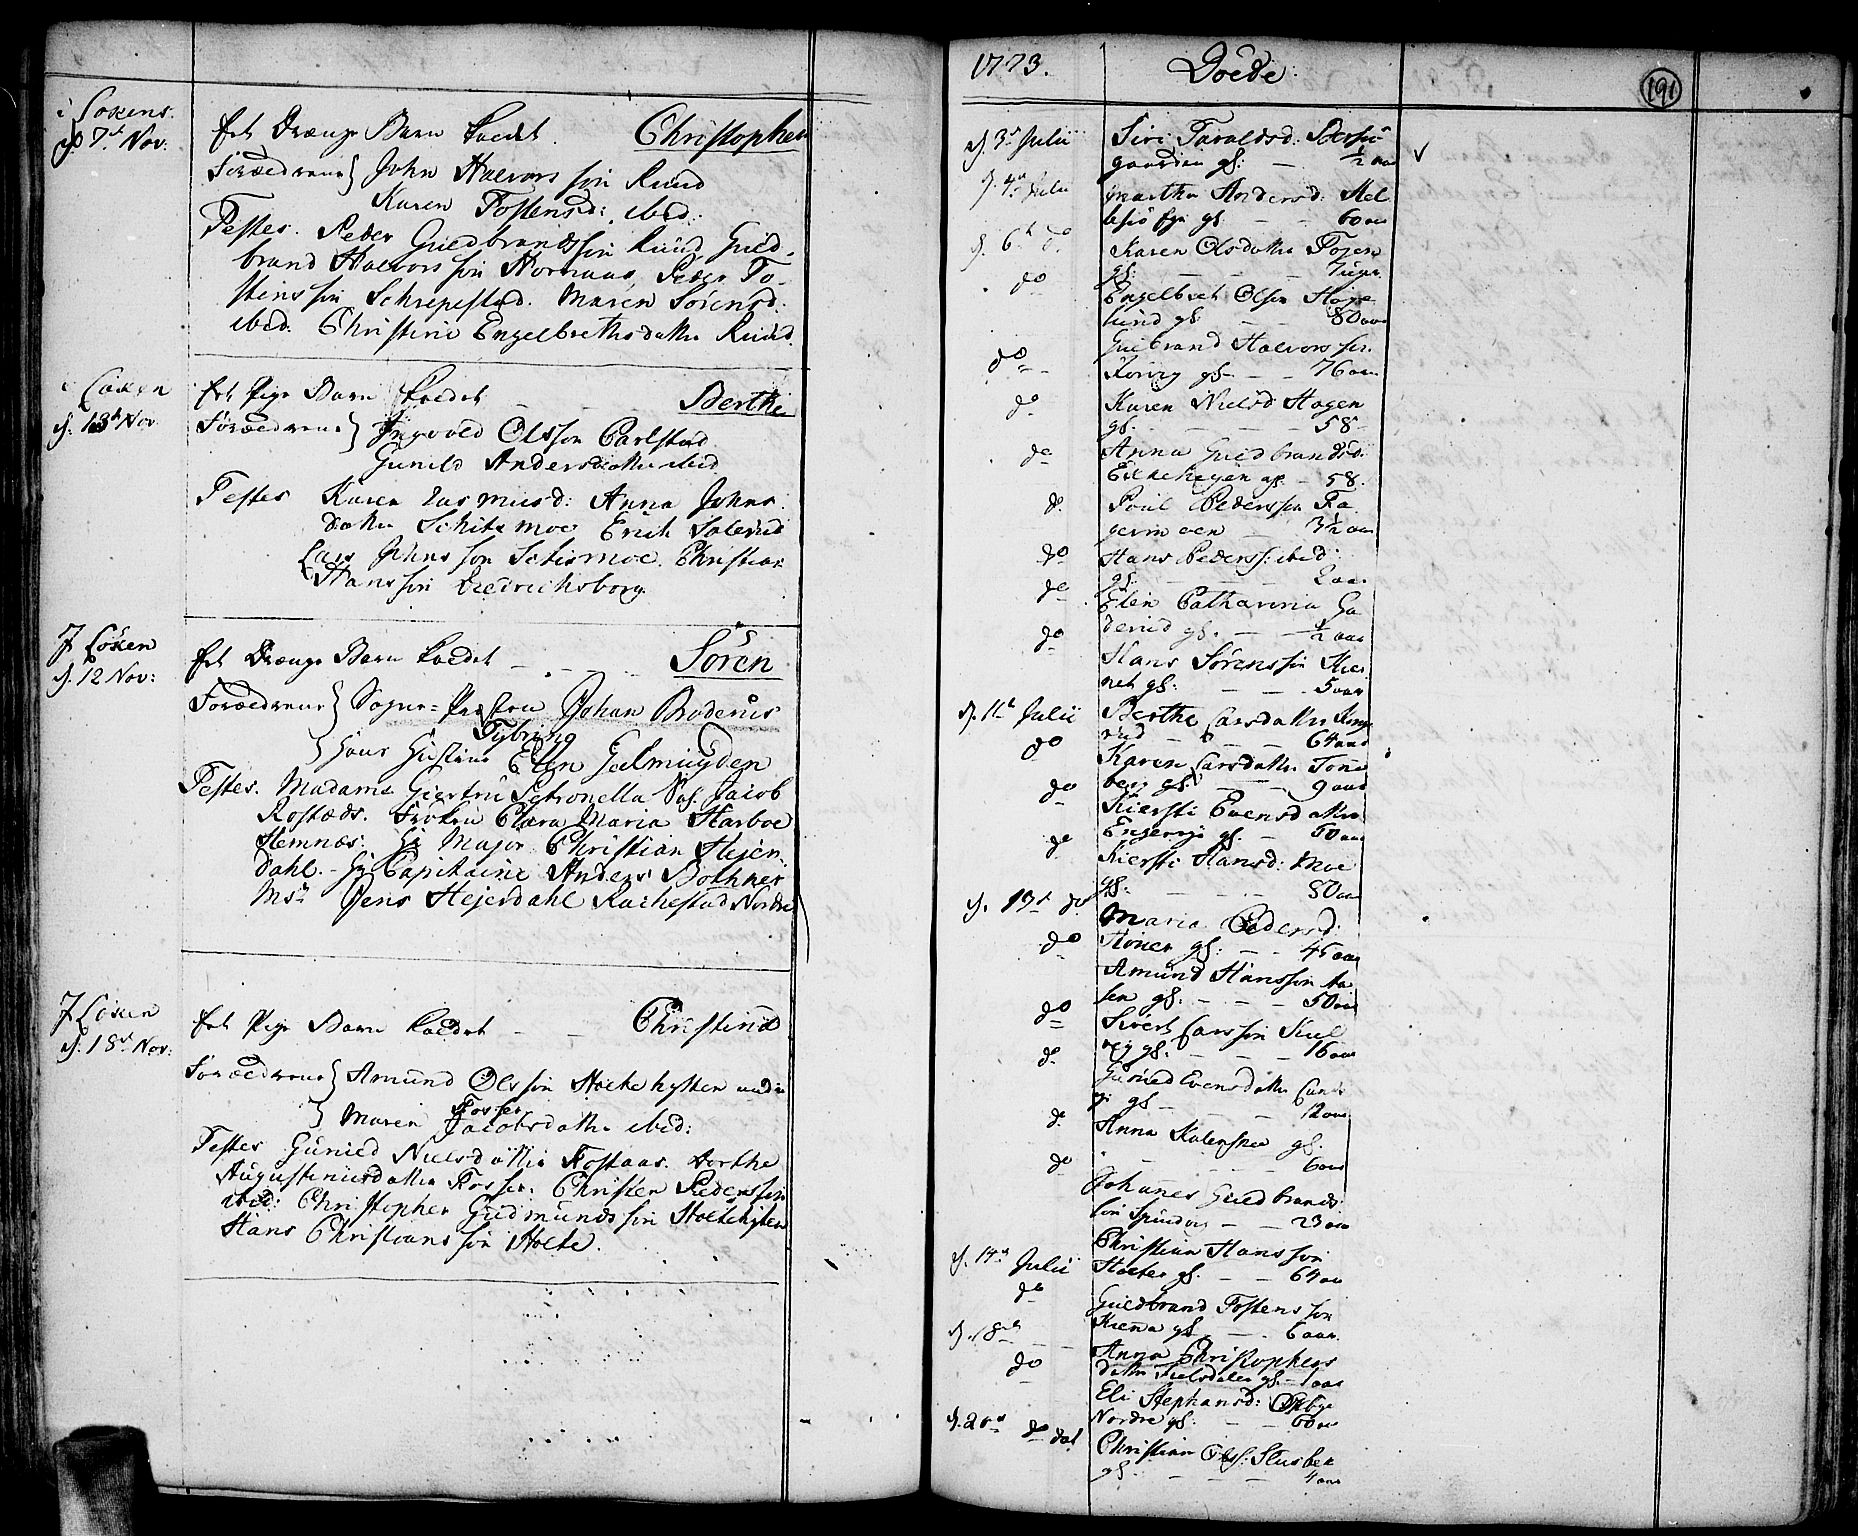 i Løkens
d. 7de Nov:
Et Drænge Barn kaldet Christopher
Forældrene } John Halvors søn Ruud
Karen Tostensd: ibid:
Testes. Peder Guldbrandssøn Ruud, Guld-
brand Halvors søn Hornaas, Peder To-
stens søn Schrepestad. Maren Sørensd.
ibid. Christine Engelbrethsdatter Ruud.
i Løken
d. 13de Nov.
Et Pige Barn kaldet Berthe
Forældrene } Ingvold Olssøn Carlstad
Gunild Andersdatter ibid.
Testes Karen Rasmusd: Anna Johns
datter Schitzmoe Erich
Lars Johns søn Schismoe. Christian
Hans søn Diedrichsborg
J Løken
d. 12 Nov:
Et Drænge Barn kaldet Søren
Forældrene } Sogne-Præsten Johan Broderus
Tybring
} Hans Hustrue Ellen Galmuyden
Testes. Madame Giertru Petronella Sal. Jacob
Rostæds. Frøken Clara Maria Harboe
Hemnæs. Hr Major Christian Hejer-
dahl. Hr Capitaine Anders Bothner
Msr Jens Hejerdahl Rachestad Nordre
J Løken
d. 18de Nov:
Et Pige Barn kaldet Christine
Forældrene } Amund Ols søn Holtehytten under
Fosser
} Maren Jacobsdatter ibid:
Testes Gunild Nielsdatter Fossaas. Dorthe
Augustinusdatter Fosser. Christen Peders søn
ibid: Christopher Gudmunds søn Holtehytten
Hans Christians søn Holte.
1773. Doede.
191
d. 3de Julii Siri Taraldsd:
gaarden gl: ½ aar
d. 4de Julii Martha Andersd:
gl. 60 aar
d. 6te do Karen Olsdatter
gl: 7 uger
do Engelbret Olsøn Hage
lund gl: 80 aar
do Gulbrand Halvors søn
gl. 76 aar
do Karen Nielsd Hagen
gl. 58
do Anna Guldbrandsd:
gl. 58.
do Poul Pederssøn Fa
germoen 3½ aar
do Hans Pederss: ibid:
gl. 2 aar
do Elen Catharina
gl. ½ aar
do Hans Sørenssøn
gl: 5 aar
d. 11te Julii Berthe Larsdatter
rud 64 aar
do Karen Larsdatter Tone
berg gl. 9 aar
do Kiersti Evensdatter
gl. 50 aar
do Kiersti Hansd: Moe
gl. 80 aar
d. 13de do Maria Pedersd:
gl: 45 aar
do Amund Hanssøn Aa
sen gl. 50 aar
do Sivert Lars søn
gl. 16 aar
do Gunild Evensdatter
gl 12 aar
do Anna gl.
6 aar
do Johanes Guldbrands
søn 23 aar
d. 14de Julii Christian Hans søn
Holter gl. 64 aar
do Guldbrand Tostens søn
gl. 6 aar.
d. 18de Anna Christophers
do datter gl. 1 aar
Eli Stephansd: Østbye
Nordre gl: 60 aar
d. 20de do Christian Olss:
gl. 4 aar